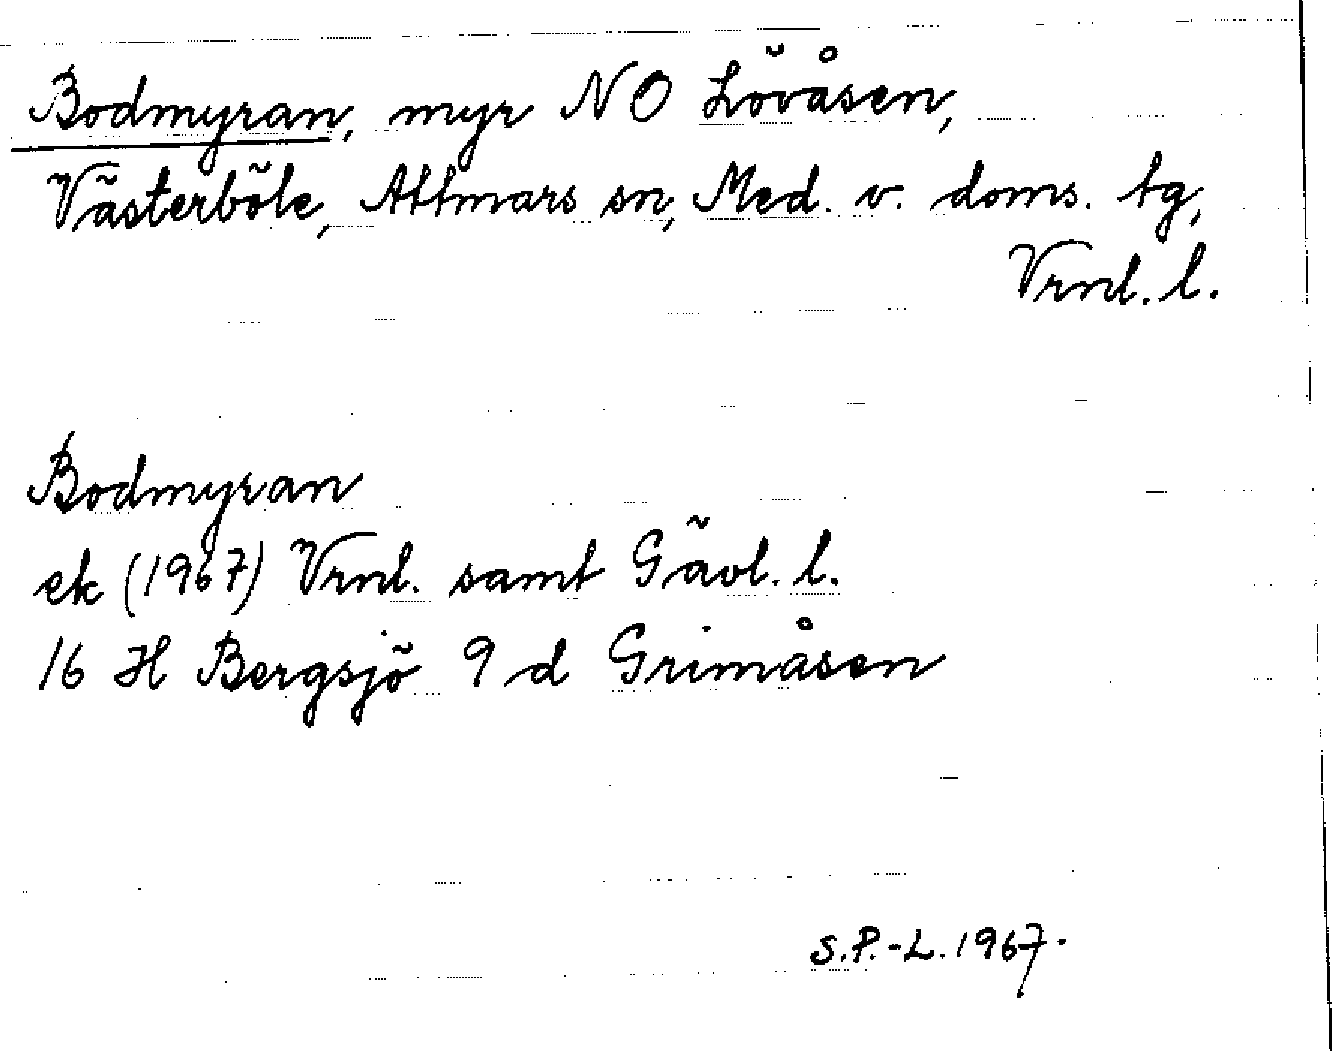 Bodmyran, myr NO Lövåsen,
Västerböle, Attmars sn, Med. v. doms. tg,
Vrnl. l.
Bodmyran
ek (1967) Vrnl. samt Gävl. l.
16 H Bergsjö 9 d Grimåsen
S.P.-L. 1967.